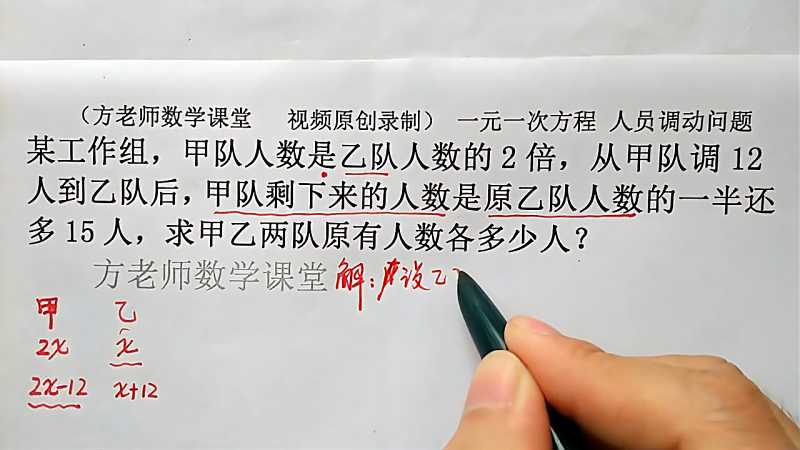 （方老师数学课堂 视频原创录制） 一元一次方程 人员调动问题
某工作组，甲队人数是乙队人数的 2 倍，从甲队调 12
人到乙队后，甲队剩下来的人数是原乙队人数的一半还
多 15 人，求甲乙两队原有人数各多少人？
方老师数学课堂 解：设乙
甲 乙
2x x
2x-12 x+12